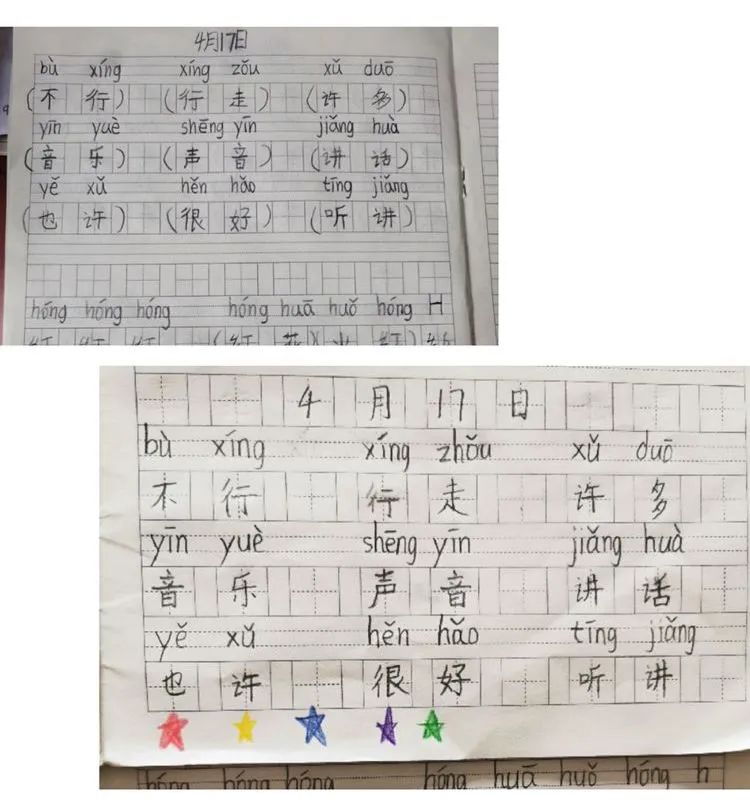 4月17日
bù xíng xíng zǒu xǔ duō
(不行) (行走) (许多)
yīn yuè shēng yīn jiǎng huà
(音乐) (声音) (讲话)
yě xǔ hěn hǎo tīng jiǎng
(也许) (很好) (听讲)
hóng hóng hóng hóng huā huǒ hóng H
4月17日
bù xíng xíng zhǒu xǔ duō
不行 行走 许多
yīn yuè shēng yīn jiǎng huà
音乐 声音 讲话
yě xǔ hěn hǎo tīng jiǎng
也许 很好 听讲
hóng hóng hóng hóng huā huǒ hóng h